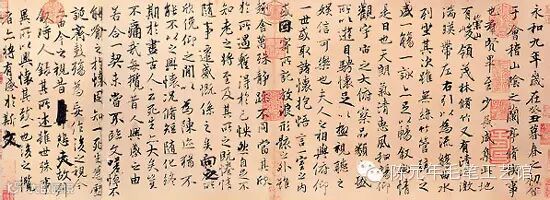 永和九年歲在癸丑暮春之初會
于會稽山陰之蘭亭脩稧事
也群賢畢至少長咸集此地
有崇山峻領茂林脩竹又有清流激
湍暎帶左右引以為流觴曲水
列坐其次雖無絲竹管弦之
盛一觴一詠亦足以暢敘幽情
是日也天朗氣清惠風和暢仰
觀宇宙之大俯察品類之盛
所以遊目騁懷足以極視聽之
娛信可樂也夫人之相與俯仰
一世或取諸懷抱悟言一室之內
或因寄所託放浪形骸之外雖
趣舍萬殊靜躁不同當其欣
於所遇暫得於己怏然自足不
知老之將至及其所之既惓情
隨事遷感慨係之矣向之所
欣俛仰之間以為陳迹猶不
能不以之興懷況脩短隨化終
期於盡古人云死生亦大矣豈
不痛哉每攬昔人興感之由
若合一契未嘗不臨文嗟悼不
能喻之於懷固知一死生為虛
誕齊彭殤為妄作後之視今
亦由今之視昔悲夫故列
敘時人錄其所述雖世殊事
異所以興懷其致一也後之攬
者亦將有感於斯文
陈元牛毛笔工艺馆